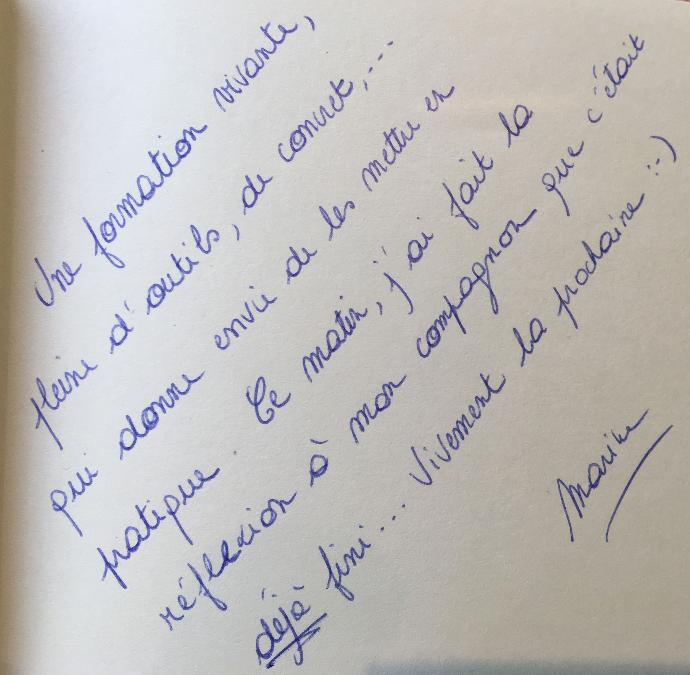 Une formation vivante,
pleine d'outils, de concret,...
qui donne envie de les mettre en
pratique. Ce matin, j'ai fait la
réflexion à mon compagnon que c'était
déjà fini... Vivement la prochaine :-)
Marine